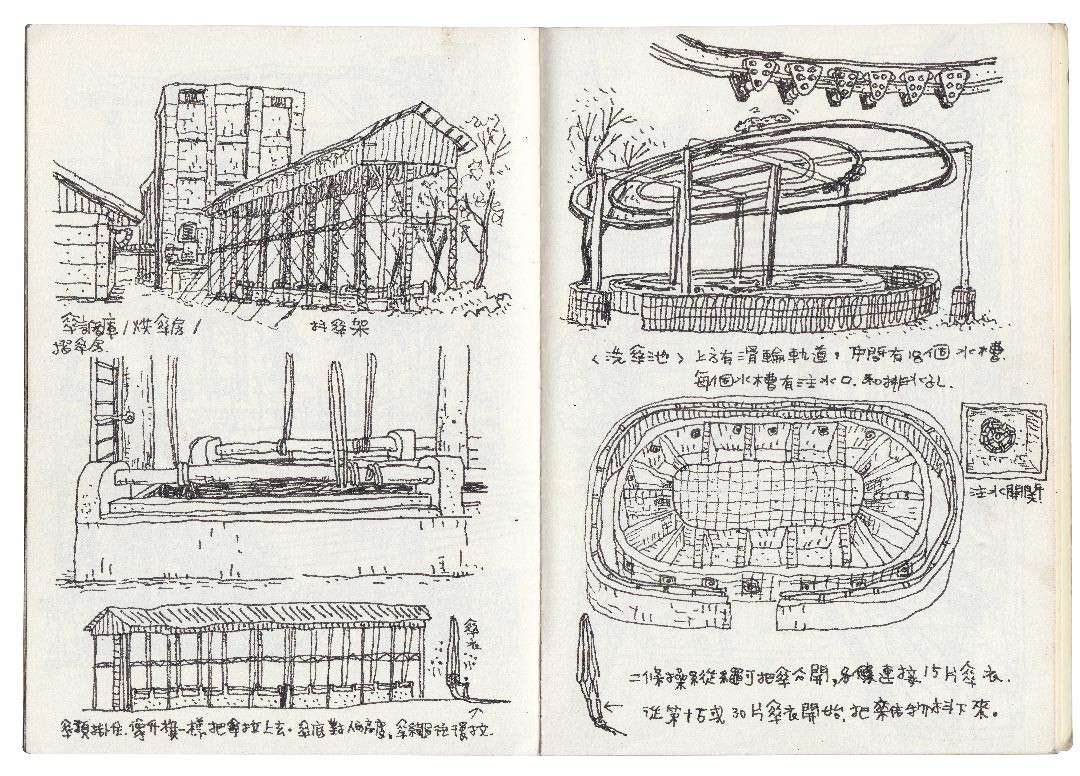 傘譜庫/烘傘房/
摺傘房.
抖傘架
傘衣
傘頂掛住.像升旗一樣把傘拉上去.傘底對
<洗傘池>上方有滑輪軌道,中間有18個水槽.
每個水槽有注水口.和排水孔.
注水開關
二條操縱繩可把傘分開,各條連接15片傘衣.
從第15或30片傘衣開始.把雜物抖下來。